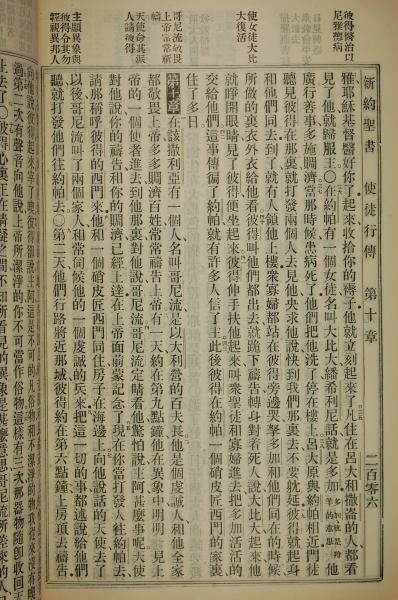 新約聖書 使徒行傳 第十章 二百零六
彼得醫治以
尼雅癱病
使女徒大比
大復活
哥尼流敬畏
上帝常常祈
禱
天使令其派
人請彼得
主顯異象與
彼得令其勿
輕視異邦人
雅耶穌基督醫好你了起來收拾你的褥子他就立刻起來了凡住在呂大和撒崙的人都看
見了他就歸服主○在約帕有一個女徒名叫大比大繙希利尼話就是多加多加就是羚羊的意思他
廣行善事多施賙濟當那時候患病死了他們把他洗了停在樓上呂大原與約帕相近門徒
聽見彼得在那裏就打發兩個人去見他央求他說快到我們那裏去不要躭延彼得就起身
和他們同去到了就有人領他上樓衆寡婦都站在彼得旁邊哭拏多加和他們同在的時候
所做的裏衣外衣給他看彼得叫他們都出去就跪下禱告轉身對着死人說大比大起來他
就睜開眼睛見了彼得便坐起來彼得伸手扶他起來叫衆聖徒和寡婦進去把多加活活的
交給他們這事傳徧了約帕就有許多人信了主此後彼得在約帕一個硝皮匠西門的家裏
住了多日
第十章 在該撒利亞有一個人名叫哥尼流是以大利營的百夫長他是個虔誠人和他全家
都敬畏上帝多多賙濟百姓常常禱告上帝有一天約在第九點鐘他在異象中明明見上
帝的一個使者進去到他那裏對他說哥尼流哥尼流定睛看他驚怕說主阿甚麼事呢天使
對他說你的禱告和你的賙濟已經上達在上帝面前蒙記念了現在你當打發人往約帕去
請那稱呼彼得的西門來他和一個硝皮匠西門同住房子在海邊上向他說話的天使去了
以後哥尼流叫了兩個家人和常伺候他的一個虔誠的兵來把這一切的事都述說給他們
聽就打發他們往約帕去○第二天他們行路將近那城彼得約在第六點鐘上房頂去禱告
向他說彼得起來宰了喫彼得卻說主阿這是不可的凡俗物和不潔淨的物我從來沒有喫
過第二次有聲音向他說上帝所潔淨的你不可當作俗物這樣有三次那器物隨卽收回天
上去了○彼得心裏正在猜疑之間不知所看見的異象是甚麼意思哥尼流所差來的人